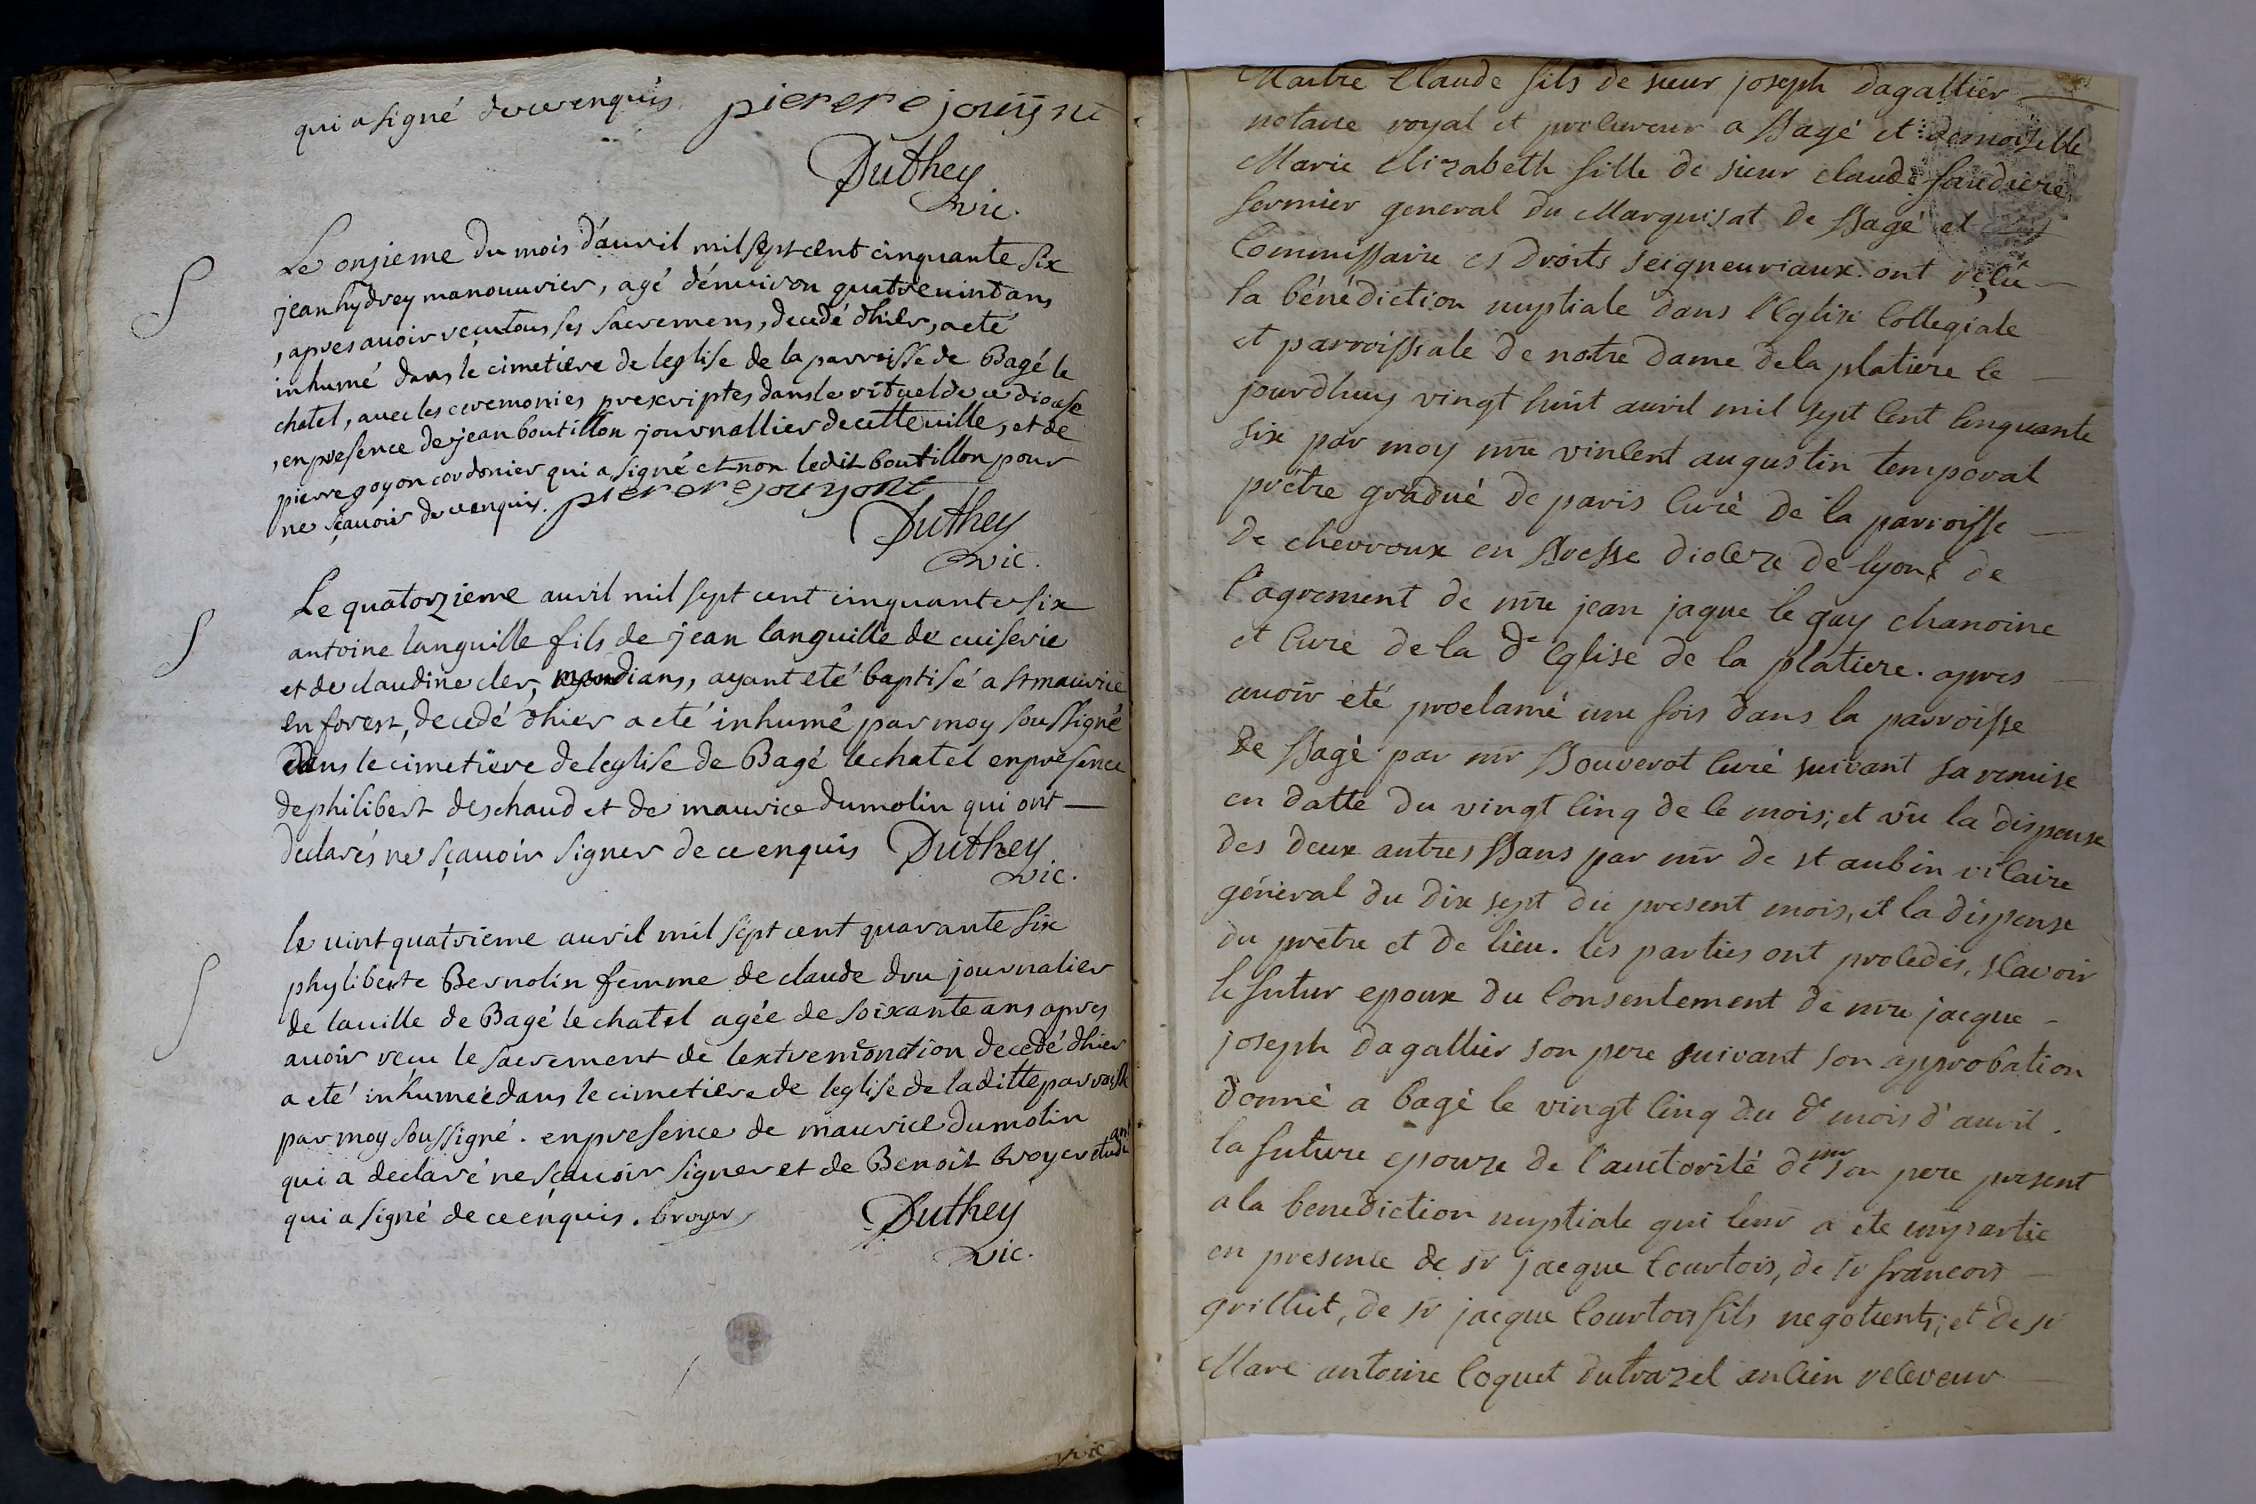 qui a signé de ce enquis pierere jouynt
Duthey
vic.
Le onzieme du mois d'auril mil sept cent cinquante six
jean hydrey manouurier, agé d'enuiron quatre uint ans
, apres auoir reçu tous ses sacremens, decedé d'hier, a eté
inhumé dans le cimetiere de leglise de la parroisse de Bagé le
chatel, auec les ceremonies prescriptes dans le rituel de ce diocese
, en presence de jean boutillon journallier de cette uille, et de
pierre goyon cordonier qui a signé et non ledit boutillon pour
ne sçauoir de ce enquis. pierere gouyont
Duthey
vic.
Le quatorzieme auril mil sept cent cinquante six
antoine languille fils de jean languille de cuiserie
et de claudine cler, mendians, ayant eté baptisé a st maurice
en forest, decedé d'hier a eté inhumé par moy soussigné
dans le cimetiere de leglise de Bagé le chatel en presence
de philibert deschaud et de maurice dumolin qui ont
declarés ne sçauoir signer de ce enquis Duthey.
vic.
le uint quatrieme auril mil sept cent quarante six
phyliberte Bernolin femme de claude dru journalier
de la uille de Bagé le chatel agée de soixante ans apres
auoir reçu le sacrement de lextremonction decedé d'hier
a eté inhumée dans le cimetiere de leglise de laditte parroisse
par moy soussigné. en presence de maurice dumolin
qui a declaré ne sçauoir signer et de Benoit broyer etudiant
qui a signé de ce enquis. broyer Duthey
vic.
vic
Maitre Claude fils de sieur joseph Dagallier
notaire royal et procureur a Bagé et demoiselle
Marie Elizabeth fille de sieur claude faudiere
fermier general du Marquisat de Bagé et
Commissaire es Droits seigneuriaux. ont reçu
la bénédiction nuptiale dans l'Eglise Collegiale
et parroissiale de notre dame de la platiere ce
jourdhuy vingt huit auril mil sept cent cinquante
six par moy mre vincent augustin temporal
prêtre gradué de paris Curé de la parroisse
de chevroux en Bresse diocèze de lyon, de
l'agrement de mre jean jaque le guy chanoine
et Curé de la de Eglise de la platiere. apres
auoir eté proclamé une fois dans la parroisse
de Bagé par mr Bouverot Curé suivant sa remise
en datte du vingt cinq de ce mois; et vu la dispense
des deux autres Bans par mr de st aubin vicaire
géneral du dix sept du present mois, et la dispense
du prêtre et de lieu. les parties ont procedés, sçavoir
le futur epoux du consentement de mre jacque
joseph dagallier son pere suivant son approbation
donné a bagé le vingt cinq du dt mois d'auril.
la future epouze de l'auctorité de mr son pere present
a la benediction nuptiale qui leur a ete impartie
en presence de sr jacque Courtois, de sr francois
grilliet, de sr jacque Courtois fils negotients; et de sr
Marc antoine Coquet dutrazel ancien receveur